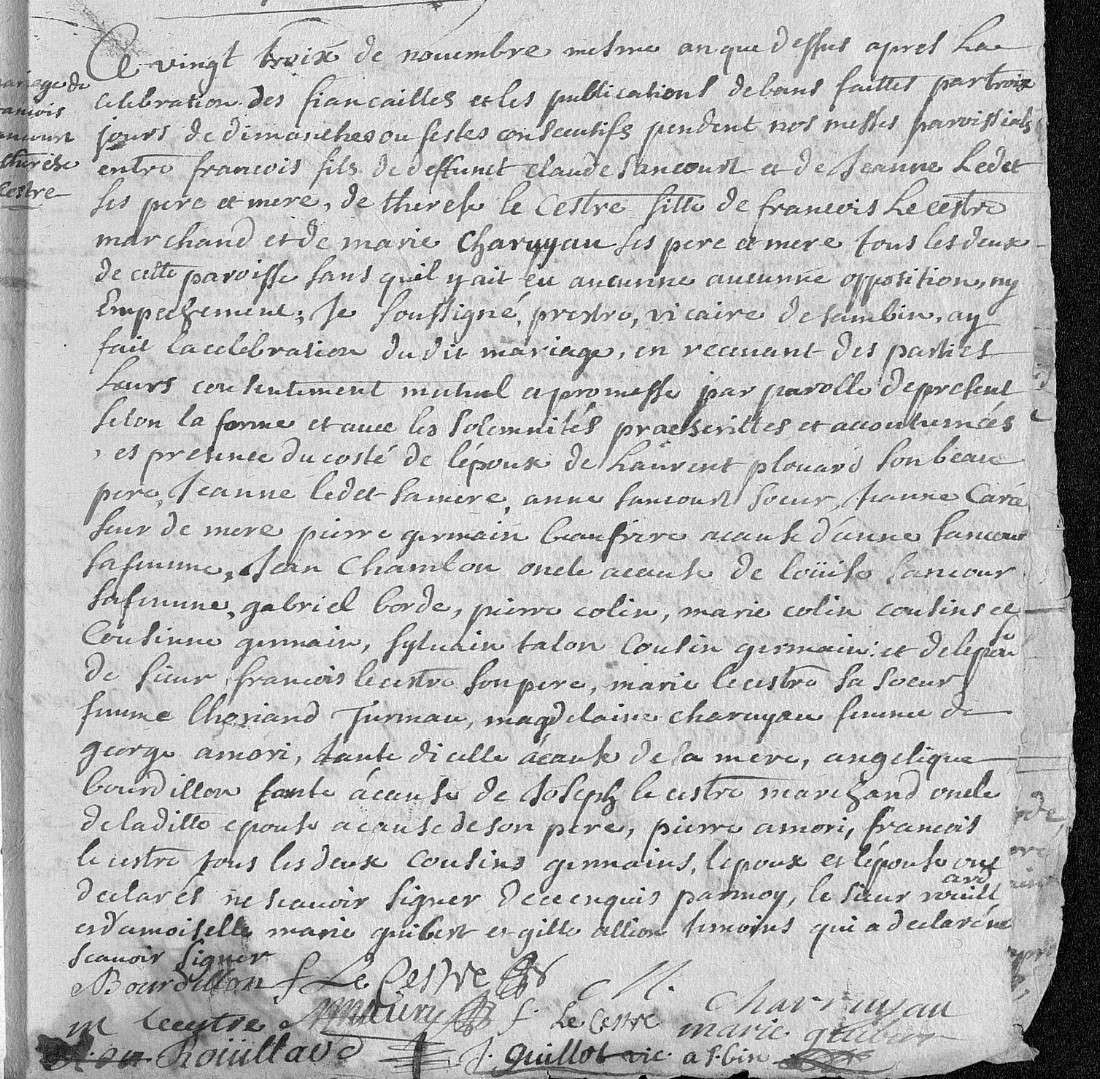 Ce vingt troix de novembre mesme an que dessus apres La
celebration des fiancailles et les publications de bans faittes par troix
jours de dimanches ou festes consecutifs pendent nos messes paroissials
entre francois fils de deffunct claude Sancourt et de Jeanne Ledet
ses pere et mere, de therese le Cestre fille de francois Le cestre
marchand et de marie Charuyau ses pere et mere tous les deux
de cette paroisse sans quil y ait eu aucunne aucunne opposition, ny
Empechement; Je soussigné, prestre, vicaire de sambin, ay
fait la celebration du dit mariage, en recevant des parties
Leurs consentement mutuel et promesse par parolle de present
selon la forme et avec les solemnités praescrittes et accoutumées
, es presence du costé de lépoux de Laurent plouard son beau
pere, Jeanne ledet sa mere, anne sancourt soeur, Jeanne
seur de mere pierre germain beaufrere a cause d'anne sancour
sa femme, Jean Chamlou oncle a cause de loüise Sancour
sa femme, gabriel borde, pierre colin, marie colin cousins et
Cousinne germain, sylvain talon Cousin germain: et de lépouse
de sieur francois le cestre son pere, marie le cestre sa soeur
femme Jurmau, magdelaine charuyau femme de
george amori, tante dicelle a cause de sa mere, angelique
bourdillon tante á cause de Joseph le cestre marchand oncle
de la ditte epouse a cause de son pere, pierre amori, francois
le cestre tous les deux cousins germains, lépoux et lépouse ont
declarés ne scavoir signer de ce enquis par moy, le sieur
et damoiselle marie guibert et gille allion temoins qui a declaré ne
scavoir signer
Bourdillon f Le Cestre
M. Charruyau
f. Le Cestre
m lecestre
marie guibert
Roüillard
J. Guillot vic a s. bin
mariage de
francois
sancourt
therese
lecestre